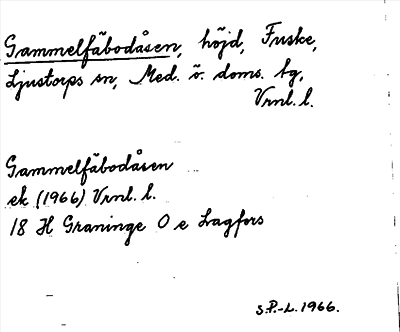 Gammelfäbodåsen, höjd, Fuske,
Ljustorps sn, Med. ö. doms. tg,
Vrnl. l.
Gammelfäbodåsen
ek (1966) Vrnl. l.
18 H Graninge O e Lagfors
S.P.-L. 1966.